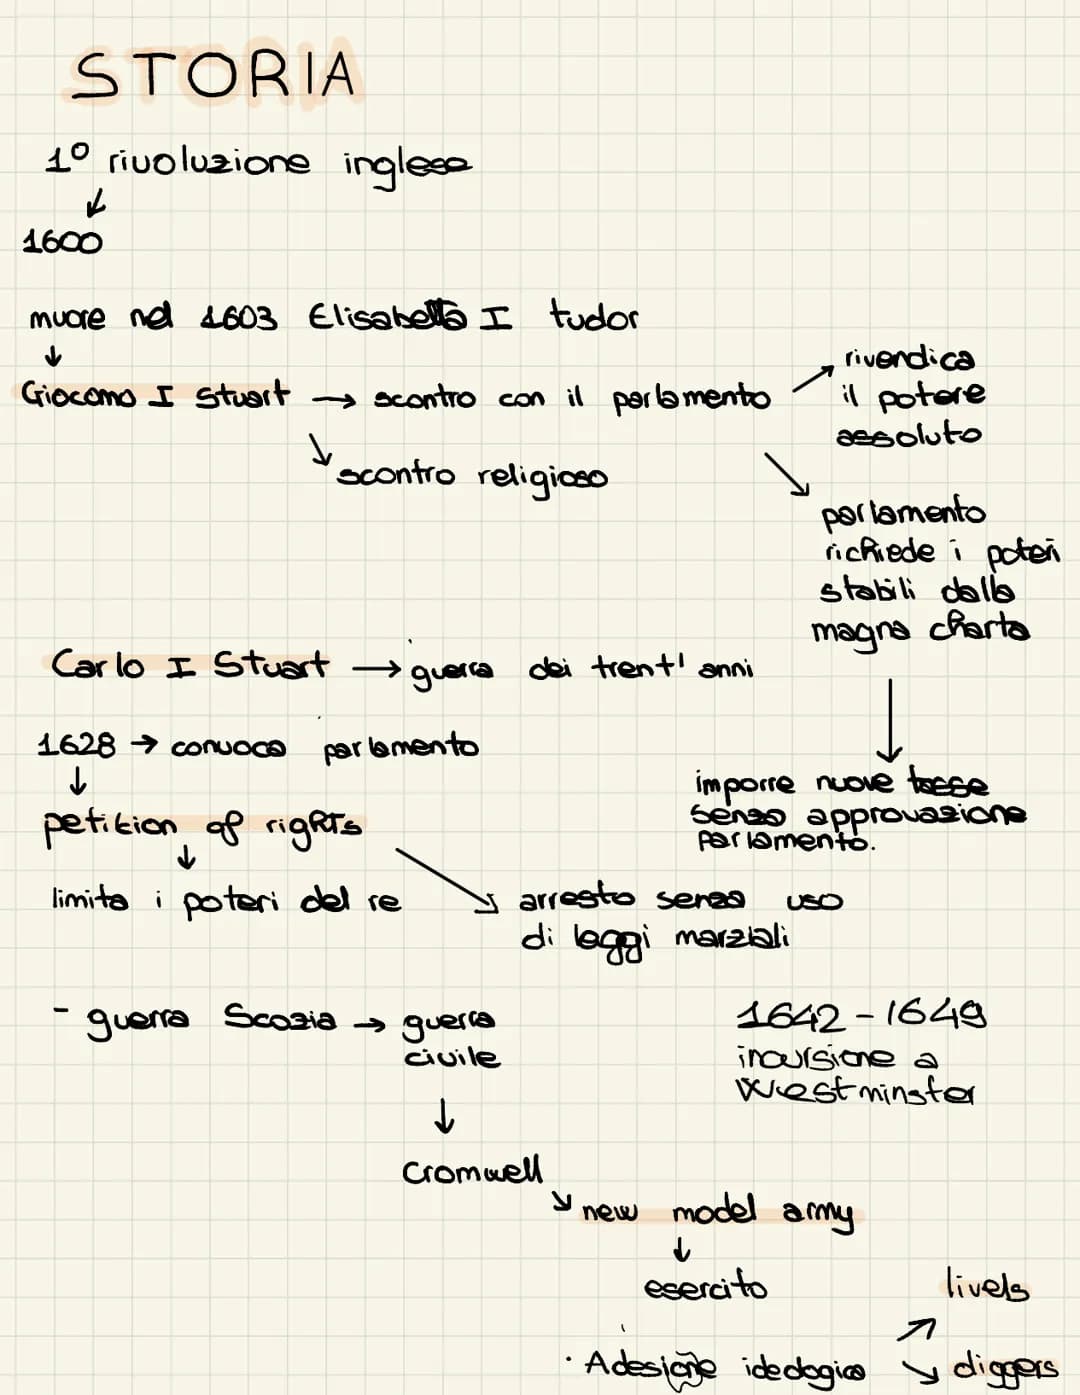 STORIA
1° rivoluzione inglese
1600
muore nel 1603 Elisabetta I tudor
Giacomo I Stuart → scontro con il parlamento
rivendica
il potere
assoluto
scontro religioso
parlamento
richiede i poteri
stabili dalla
magna charta
Carlo I Stuart → guerra dei trent' anni
1628 → convoca parlamento
imporre nuove tasse
senza approvazione
parlamento.
petition of rights
limita i poteri del re
arresto senza uso
di leggi marziali
- guerra Scozia → guerra
civile
1642-1649
incursione a
Westminster
Cromwell
new model army
esercito
livels
· Adesione ideologica
diggers